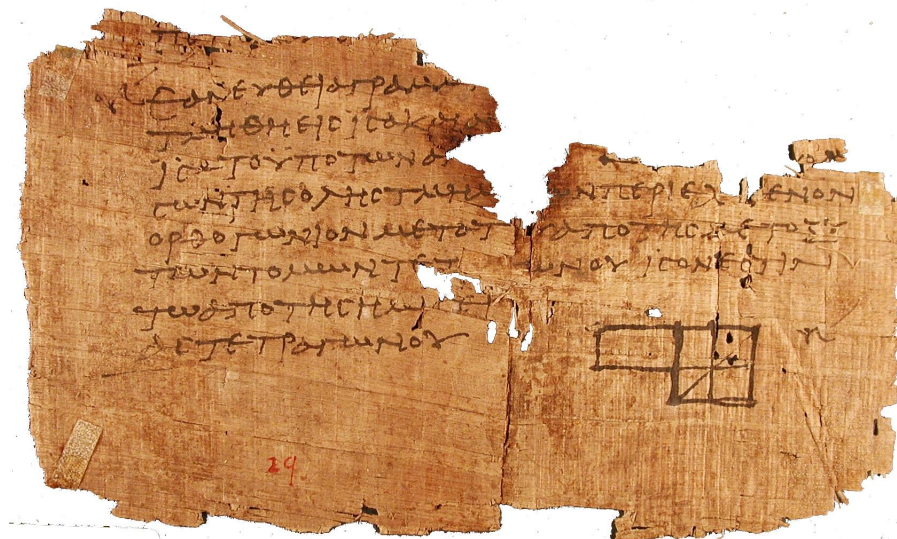 ΕΑΝ ΕΥΘΕΙΑ ΓΡΑΜΜ
ΤΜΗΘΗ ΕΙϹ ΙϹΑ ΚΑΙ ΑΝ
ΙϹΑ ΤΟ ΥΠΟ ΤΩΝ ΑΝ
ϹΩΝ ΤΗϹ ΟΛΗϹ ΤΜΗΜ Ν ΠΕΡΙΕΧΟΜΕΝΟΝ
ΟΡΘΟΓΩΝΙΟΝ ΜΕΤΑ ΤΟΥ ΑΠΟ ΤΗϹ ΜΕΤΟΞΥ
ΤΩΝ ΤΟΜΩΝ ΤΕΤ ΩΝΟΥ ΙϹΟΝ ΕϹΤΙΝ
ΤΩ ΑΠΟ ΤΗϹ ΗΜΙϹΕΙ
ΤΕΤΡΑΓΩΝΟΥ
29